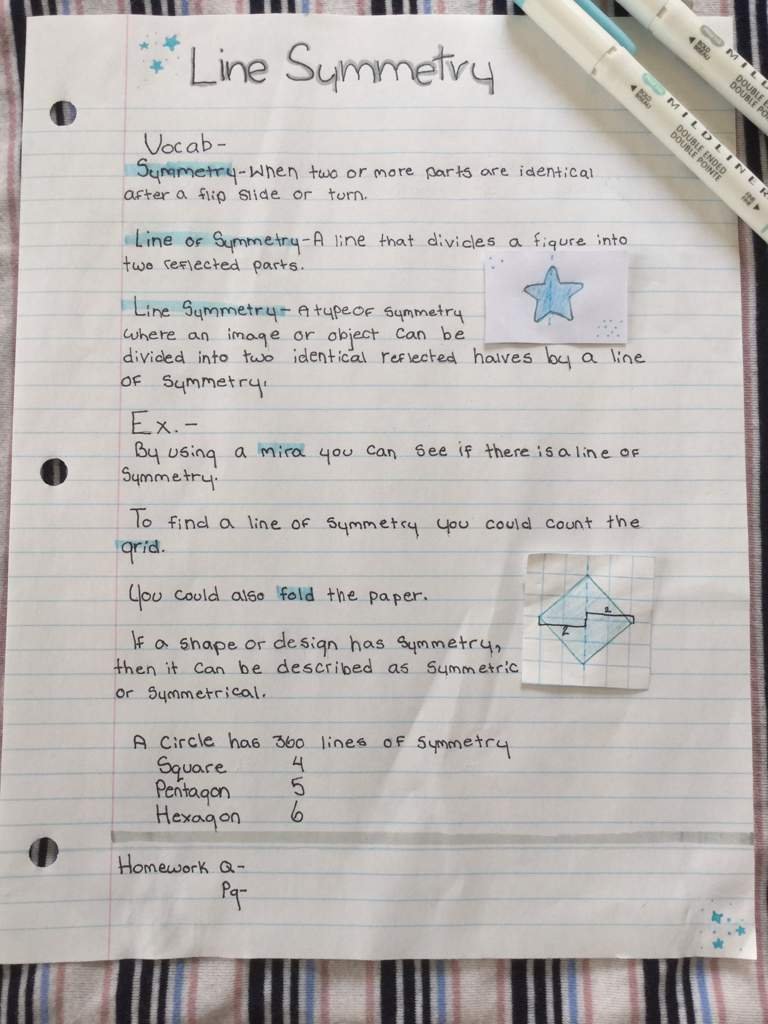 Line Symmetry
Vocab-
Symmetry-When two or more parts are identical
after a flip slide or turn.
Line of Symmetry-A line that divides a figure into
two reflected parts.
Line Symmetry-A type of symmetry
where an image or object can be
divided into two identical reflected halves by a line
of symmetry.
Ex.-
By using a mira you can see if there is a line of
symmetry.
To find a line of symmetry you could count the
grid.
You could also fold the paper.
2
2
If a shape or design has symmetry,
then it can be described as symmetric
or symmetrical.
A circle has 360 lines of symmetry
Square 4
Pentagon 5
Hexagon 6
Homework Q-
Pg-
MILDLINER
DOUBLE ENDED
DOUBLE POINTE
MILD
DOUBLE E
DOUBLE PO